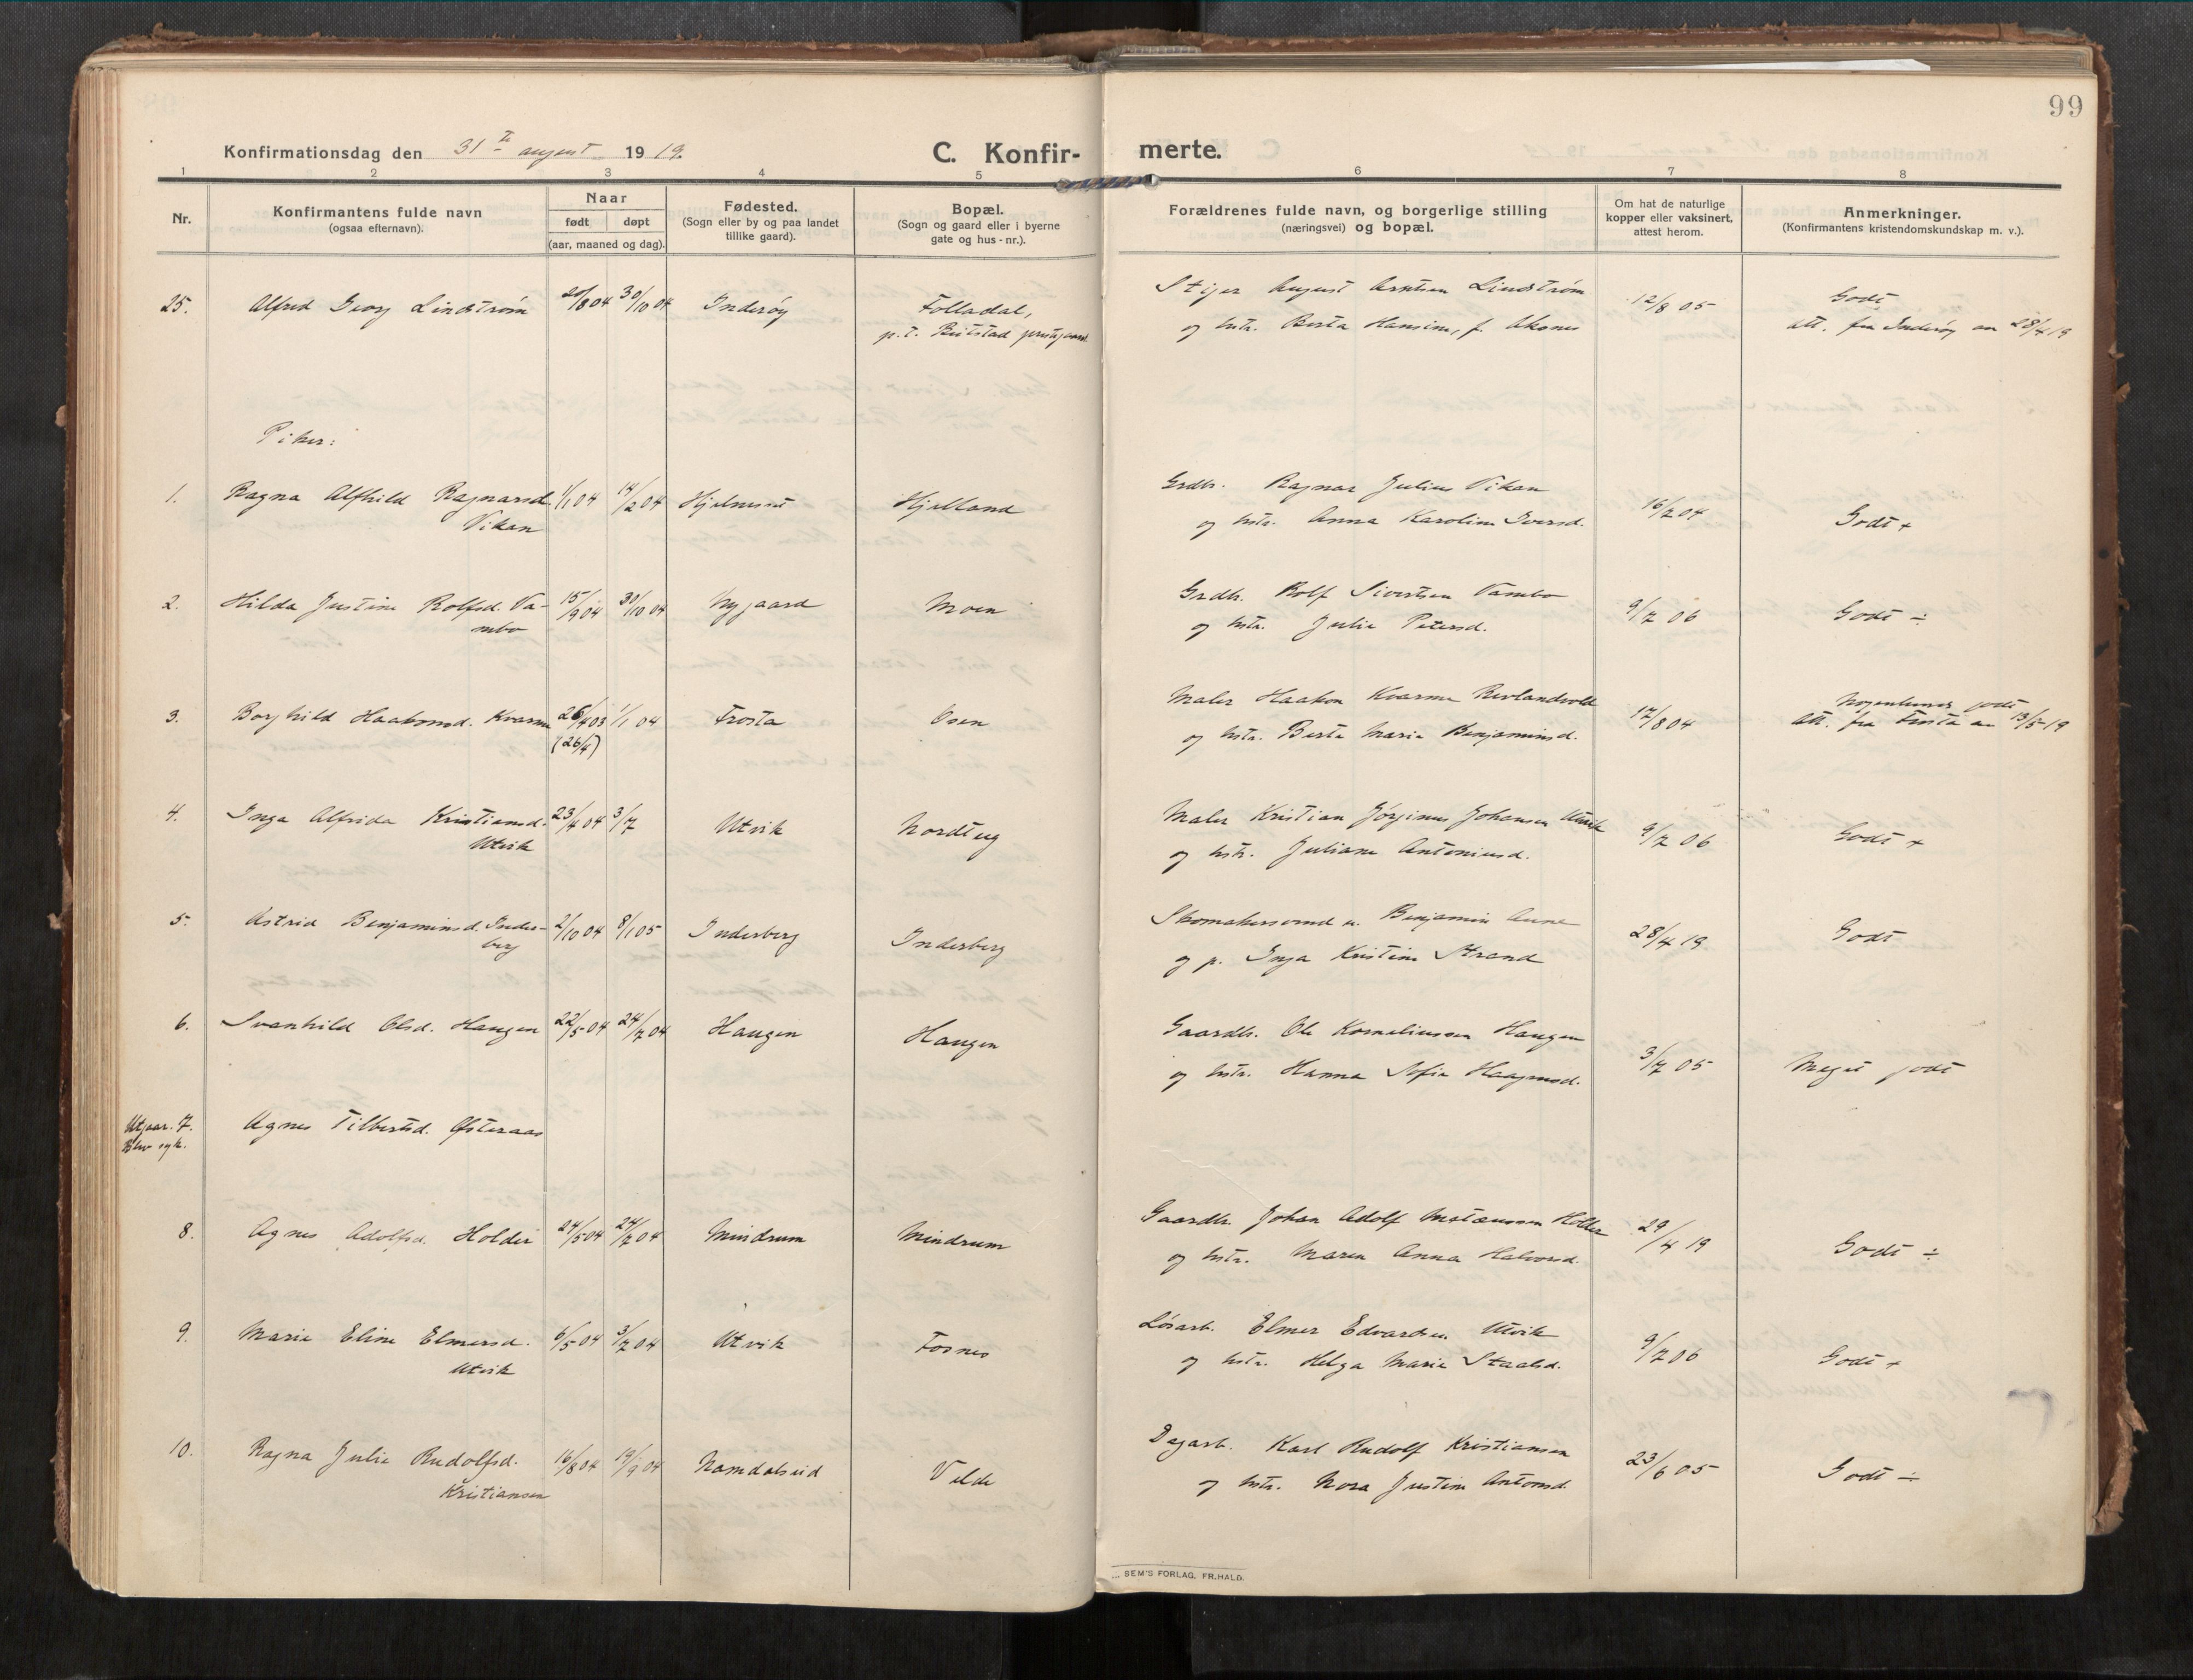 99
Konfirmationsdag den 31te august 1919.
C. Konfir- merte.
1 2 3 4 5 6 7 8
Nr.
Konfirmantens fulde navn
(ogsaa efternavn).
Naar
født døpt
(aar, maaned og dag).
Fødested.
(Sogn eller by og paa landet
tillike gaard).
Bopæl.
(Sogn og gaard eller i byerne
gate og hus-nr.).
Forældrenes fulde navn, og borgerlige stilling
(næringsvei) og bopæl.
Om hat de naturlige
kopper eller vaksinert,
attest herom.
Anmerkninger.
(Konfirmantens kristendomskundskap m. v.).
25. Alfred Georg Lindstrøm 20/8 04 30/10 04 Inderøy Folladal,
p.t. Beitstad prestegaard
August Arntsen Lindstrøm
og hstr. Berta Hansine, f. Aksnes
12/8 05
Godt
att. fra Inderøy av 28/4 19
Piker:
1. Ragna Alfhild Ragnarsd. 1/1 04 14/2 04 Hjelland
Vikan
Grdbr. Ragnar Julius Vikan
og hstr. Anna Karoline Iversd.
16/7 04
Godt +
2. Hilda Justine Rolfsd. Va- 15/9 04 30/10 04 Nygaard Moen
mbo
Grdbr. Rolf Sivertsen Vambo
og hstr. Julie Petersd.
9/7 06
Godt ÷
3. Borghild Haakonsd. Kvarme 26/4 03 1/1 04 Frosta Osen
(26/4)
Maler Haakon Kvarme
og hstr. Berta Marie Benjaminsd.
17/8 04
Nogenlunde godt
att. fra Frosta av 13/5 19
4. Inga Alfrida Kristiansd. 23/4 04 3/7 Utvik Nordtug
Utvik
Maler Kristian Jørginus Johansen Utvik
og hstr. Juliane Antoniusd.
9/7 06
Godt +
5. Astrid Benjaminsd. Inder- 2/10 04 8/1 05 Inderberg Inderberg
berg
Skomakersvend u. Benjamin Aune
og p. Inga Kristine Strand
28/4 19
Godt
6. Svanhild Olsd. Haugen 22/5 04 24/7 04 Haugen Haugen
Gaardbr. Ole Korneliussen Haugen
og hstr. Hanna Sofie Haagensd.
3/7 05
Meget godt
Utgaar. 7. Agnes Tilbertsd. Østeraas
Blev syk.
8. Agnes Adolfsd. Holder 24/5 04 24/7 04 Mindrum Mindrum
Gaardbr. Johan Adolf Holder
og hstr. Maren Anna Halvorsd.
29/4 19
Godt ÷
9. Marie Eline Elmersd. 6/5 04 3/7 04 Utvik Fosnes
Utvik
Løsarb. Elmer Edvardsen Utvik
og hstr. Helga Marie Staalsd.
9/7 06
Godt +
10. Ragna Julie Rudolfsd. 16/8 04 19/9 04 Namdalseid Velde
Kristiansen
Dagarb. Karl Rudolf Kristiansen
og hstr. Nora Justine Antonsd.
23/6 05
Godt ÷
SEM'S FORLAG. FR.HALD.